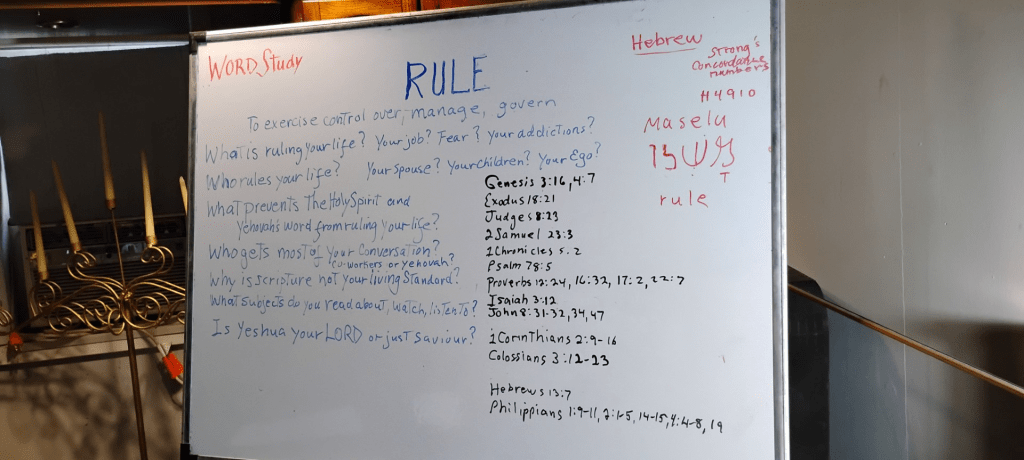 WORD Study
RULE
To exercise control over, manage, govern
What is ruling your life? Your job? Fear? Your addictions?
Who rules your life? Your spouse? Your children? Your Ego?
What prevents The Holy Spirit and
Yehovah's word from ruling your life?
Who gets most of your conversation?
co-workers or Yehovah?
Why is scripture not your living standard?
What subjects do you read about, watch, listen to?
Is Yeshua your LORD or just Saviour?
Genesis 3:16, 4:7
Exodus 18:21
Judges 8:23
2 Samuel 23:3
1 Chronicles 5:2
Psalm 78:5
Proverbs 12:24, 16:32, 17:2, 22:7
Isaiah 3:12
John 8:31-32, 34, 47
1 Corinthians 2:9-16
Colossians 3:12-23
Hebrews 13:7
Philippians 1:9-11, 2:1-5, 14-15, 4:4-8, 19
Hebrew
Strong's
Concordance
numbers
H4910
Maselu
T
rule